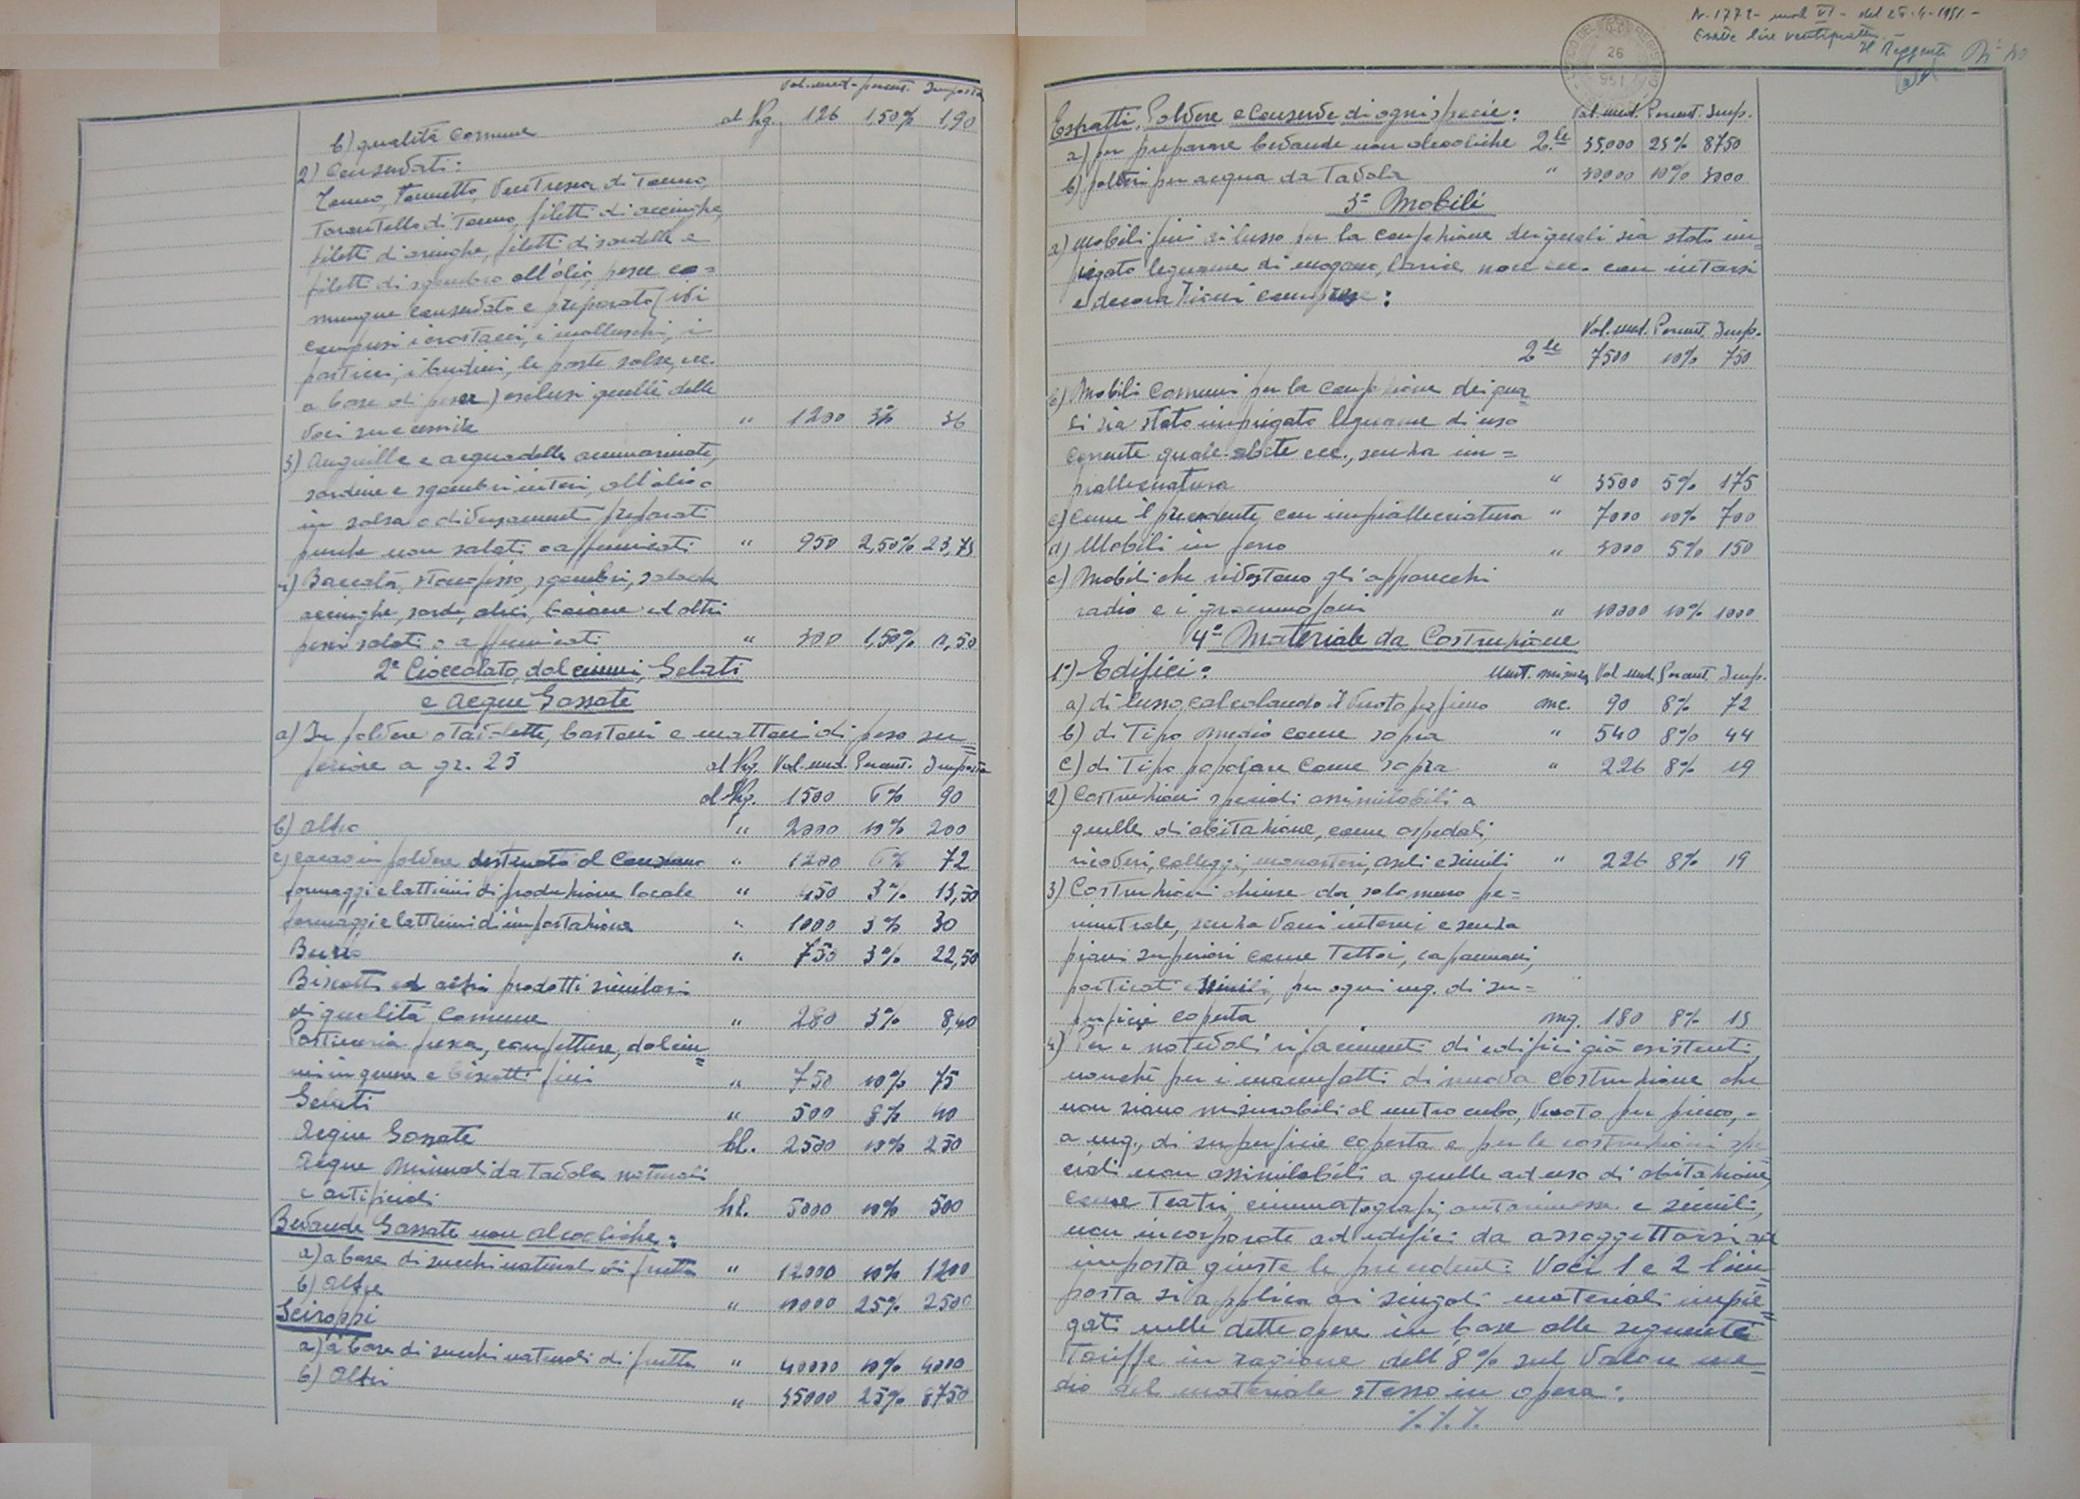 Val. med. percent. Imposta
b) qualità comune al Kg. 126 1,50% 1,90
2) Conservati:
Tonno, Tonnetto, Ventresca di Tonno,
Tarantello di Tonno, filetti di acciughe,
filetti di aringhe, filetti di sardelle e
filetti di sgombro all'olio, pesce co=
munque conservato e preparato (ivi
compresi i crostacei, i molluschi, i
pasticci, i budini, le paste salse, ecc.
a base di pesce) esclusi quelli delle
voci successive " 1200 3% 36
3) Anguille e acquadelle ammarinate,
sardine e sgombri interi, all'olio o
in salsa o diversamente preparati
purchè non salati o affumicati " 950 2,50% 23,75
4) Baccalà, stoccafisso, sgombri, salacche
acciughe, sarde, alici, bosane ed altri
pesci salati o affumicati " 300 1,50% 4,50
2° Cioccolato, dolciumi, Gelati
e Acque Gassate
a) In polvere o tavolette, bastoni e mattoni di peso su=
periore a gr. 25 al Kg. Val. med. Percent. Imposta
al Kg. 1500 6% 90
b) Altro " 2000 10% 200
c) cacao in polvere destinato al consumo " 1200 6% 72
formaggi e latticini di produzione locale " 450 3% 13,50
formaggi e latticini di importazione " 1000 3% 30
Burro " 750 3% 22,50
Biscotti ed altri prodotti similari
di qualità comune " 280 3% 8,40
Pasticceria fresca, confetture, dolciu=
mi in genere e biscotti fini " 750 10% 75
Gelati " 500 8% 40
Acque Gassate hl. 2500 10% 250
Acque Minerali da tavola naturali
e artificiali hl. 5000 10% 500
Bevande Gassate non alcooliche:
a) a base di succhi naturali di frutta " 12000 10% 1200
b) Altre " 10000 25% 2500
Sciroppi
a) a base di succhi naturali di frutta " 40000 10% 4000
b) Altri " 35000 25% 8750
N. 1772 - mod VI - del 26-4-1951 -
Esatte lire ventiquattro
Il Reggente
26
951
Estratti, Polvere e Conserve di ogni specie: Val. med. Percent. Imp.
a) per preparare bevande non alcooliche 2.le 35.000 25% 8750
b) polveri per acqua da Tavola " 30000 10% 3000
3° Mobili
a) Mobili fini di lusso per la confezione dei quali sia stato im=
piegato legname di mogano, larice, noce ecc. con intarsi
e decorazioni comprese:
Val. med. Percent. Imp.
2.le 7500 10% 750
b) Mobili Comuni per la confezione dei qua=
li sia stato impiegato legname di uso
corrente quale abete ecc., senza im=
piallacciatura " 3500 5% 175
c) Come il precedente con impiallacciatura " 7000 10% 700
d) Mobili in ferro " 3000 5% 150
e) Mobili che rivestono gli apparecchi
radio e i grammofoni " 10000 10% 1000
4° Materiale da Costruzione
1°) Edifici: Unit. misura Val. med. Percent. Imp.
a) di lusso, calcolando il vuoto per pieno mc. 90 8% 72
b) di Tipo medio come sopra " 540 8% 44
c) di Tipo popolare come sopra " 226 8% 19
2) Costruzioni speciali assimilabili a
quelle di abitazione, come ospedali,
ricoveri, collegi, monasteri, asili e simili " 226 8% 19
3) Costruzioni chiuse da solo muro pe=
rimetrale, senza vani interni e senza
piani superiori come tettoi, capannoni,
porticati e simili, per ogni mq. di su=
perficie coperta mq. 180 8% 15
4) Per i notevoli rifacimenti di edifici già esistenti
nonchè per i manufatti di nuova costruzione che
non siano misurabili al metro cubo, vuoto per pieno, -
a mq., di superficie coperta e per le costruzioni spe=
ciali non assimilabili a quelle ad uso di abitazione
come Teatri, cinematografi, autorimesse e simili,
non incorporate ad edifici da assoggettarsi ad
imposta giuste le precedenti Voci 1 e 2 l'im=
posta si applica ai singoli materiali impie=
gati nelle dette opere in base alle seguente
Tariffe in ragione dell'8% sul valore me=
dio del materiale stesso in opera:
%.%.%